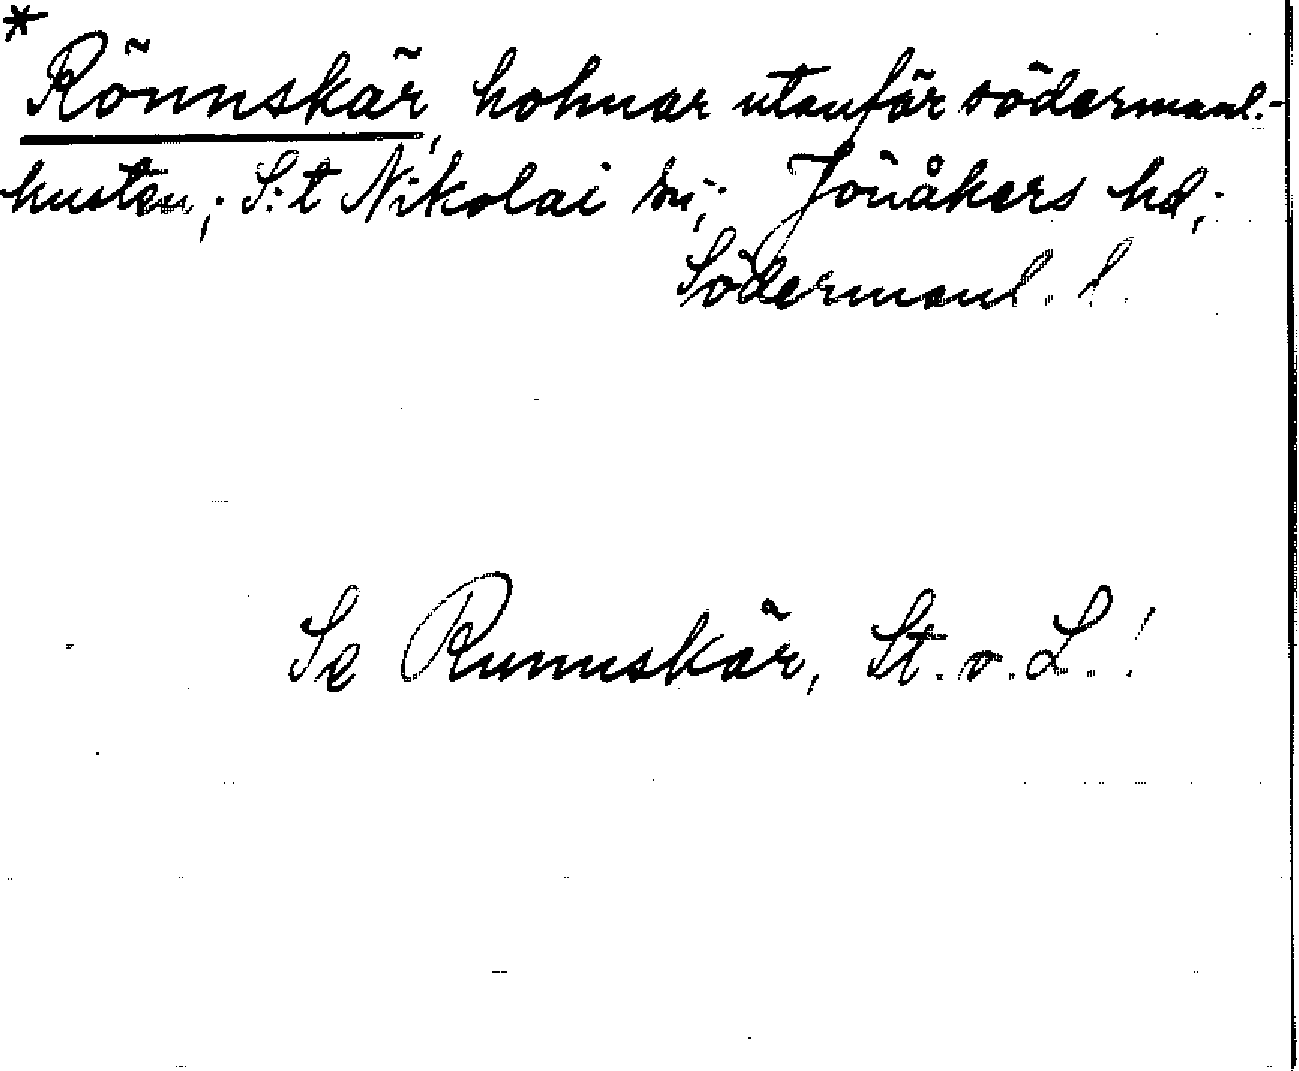 * Rönnskär, holmar utanför södermanl.-
kusten; S:t Nikolai sn; Jönåkers hd;
Södermanl. l.
Se Runnskär, St. o. L.!